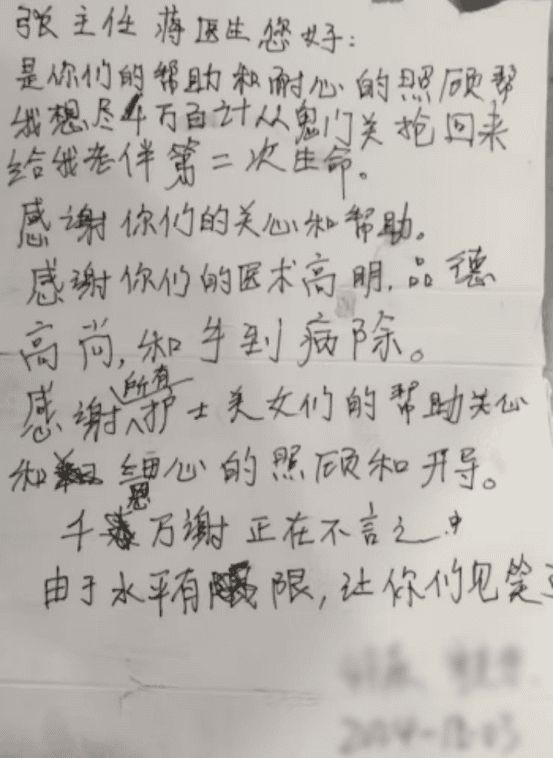 张主任 蒋医生您好:
是你们的帮助和耐心的照顾帮
我想尽千万百计从鬼门关抢回来
给我老伴第二次生命。
感谢你们的关心和帮助。
感谢你们的医术高明.品德
高尚,和手到病除。
感谢所有护士美女们的帮助关心
和细心的照顾和开导。
千恩万谢正在不言之中
由于水平有限,让你们见笑